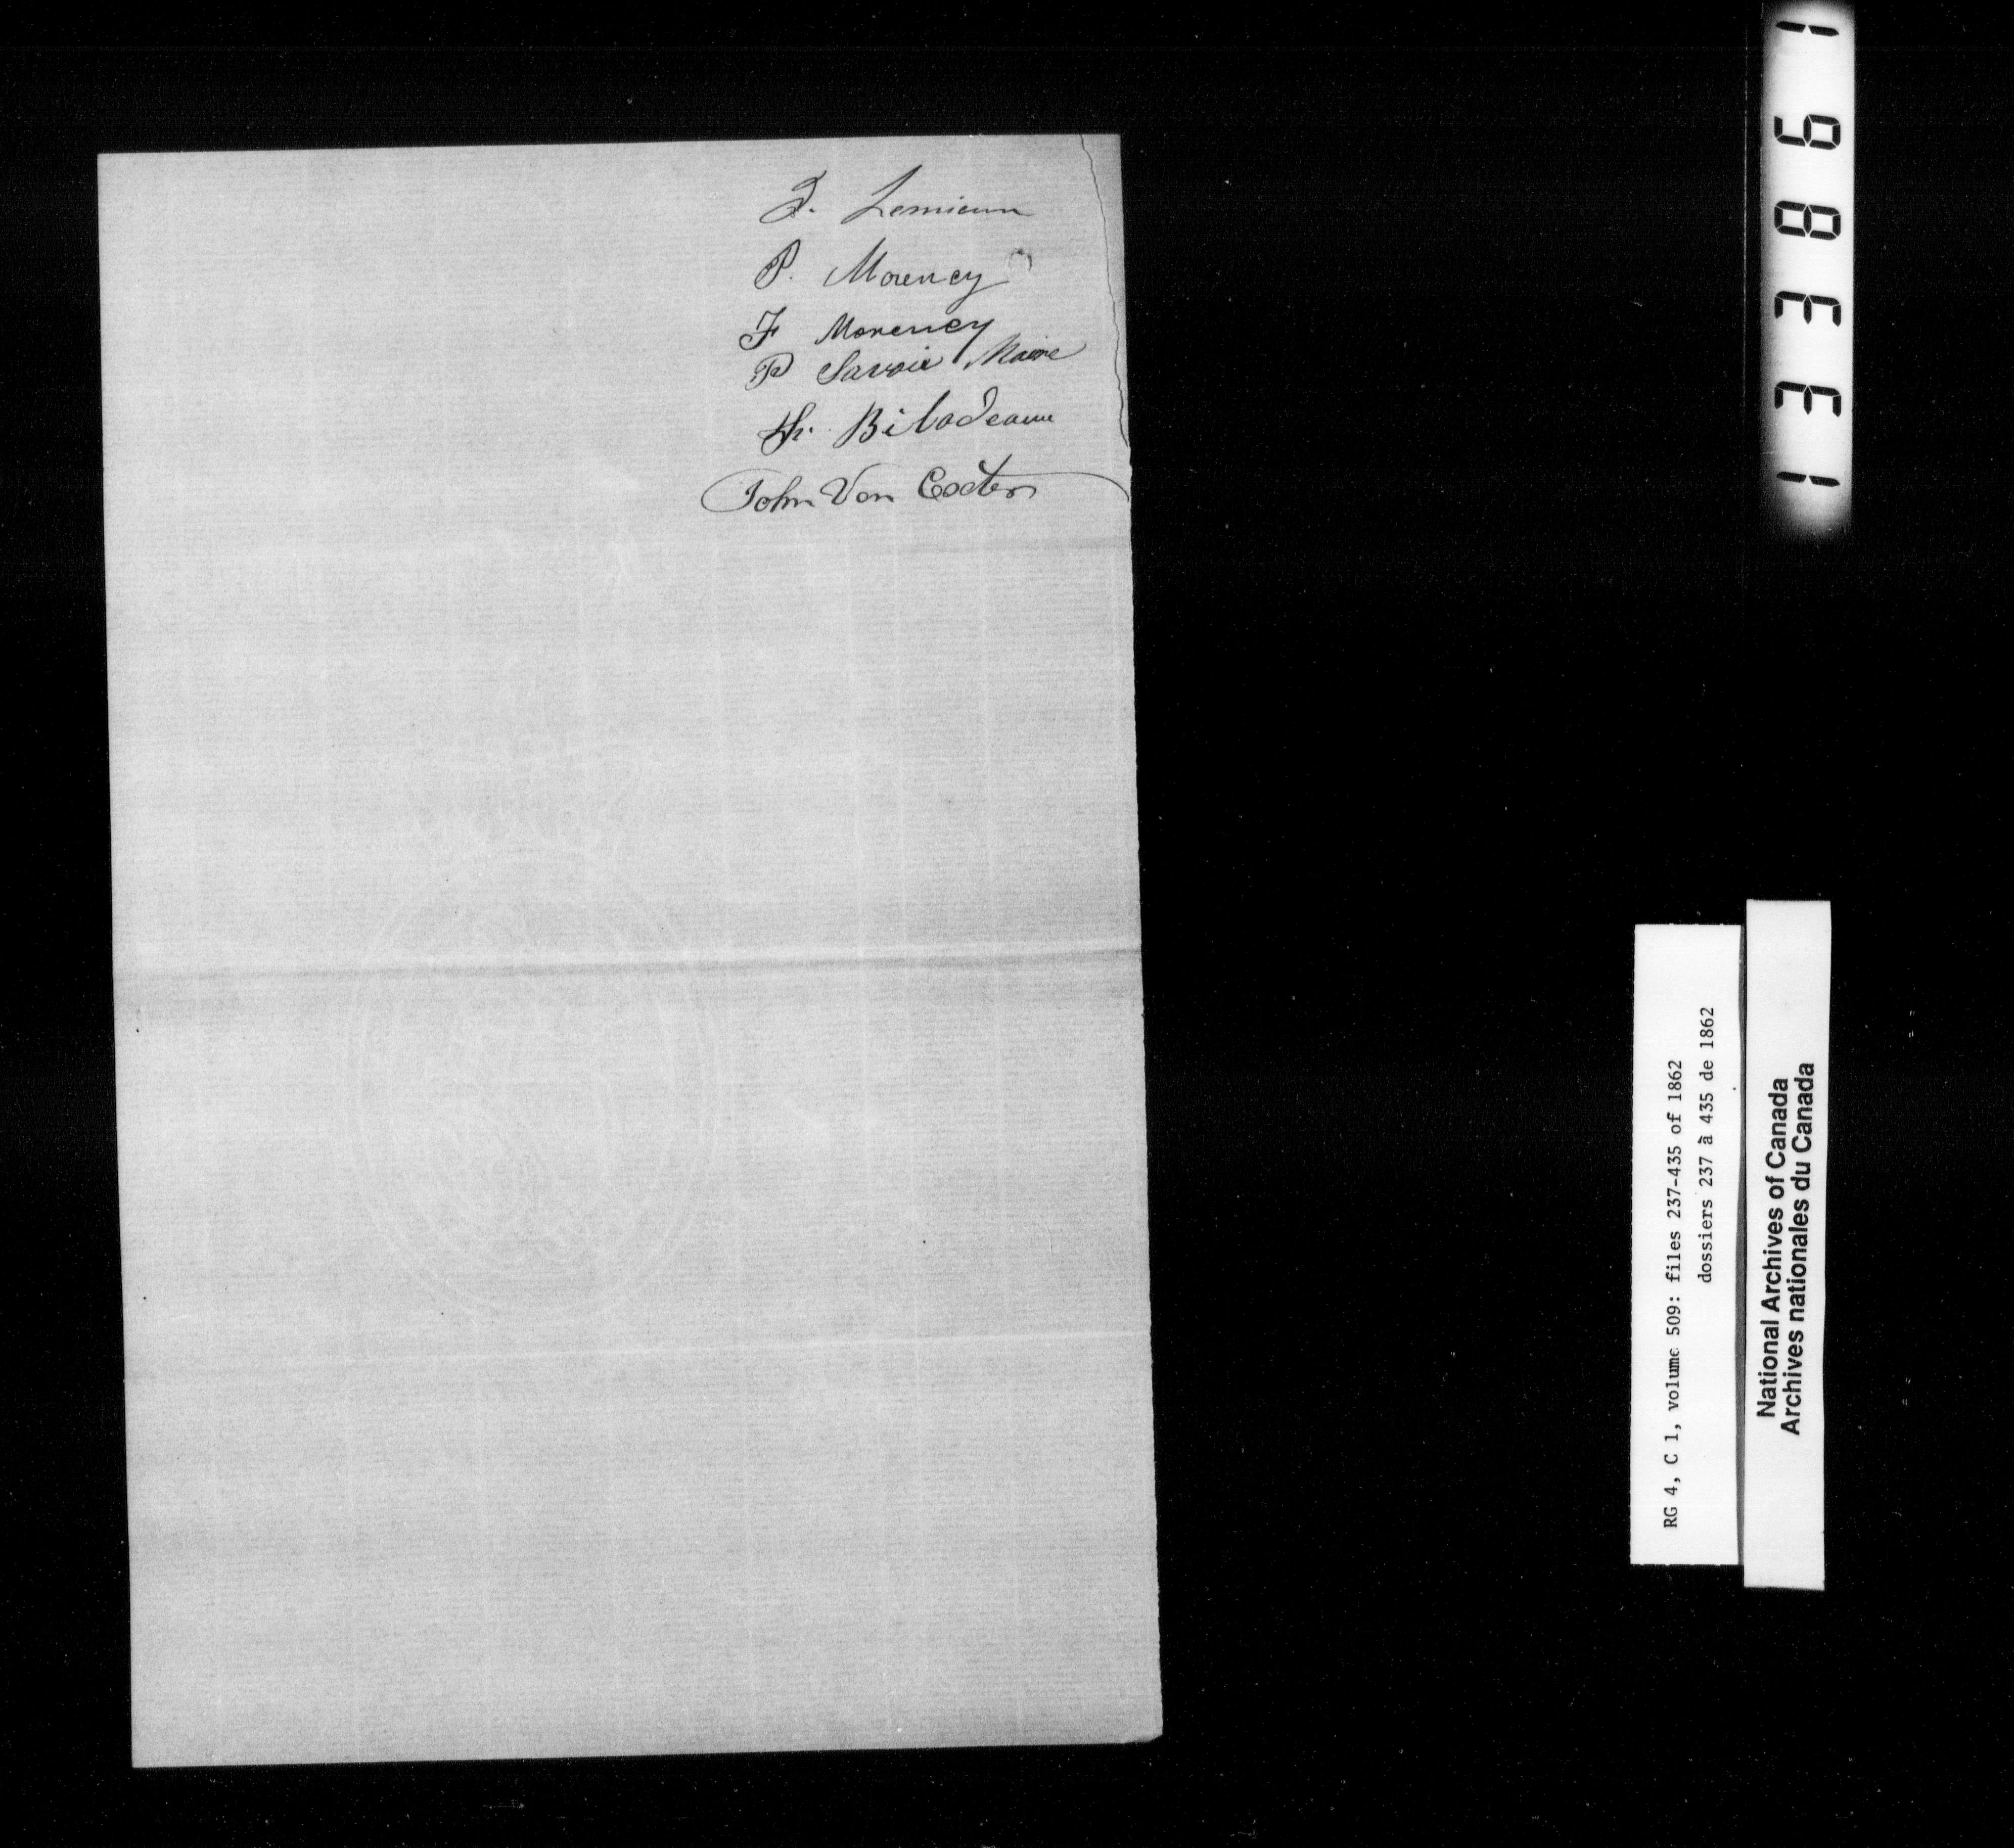 J. Lemieux
P. Morency
F Morency
P Savoie Maire
Th. Bilodeau
John Von Exter
133861
RG 4, C 1, volume 509: files 237-435 of 1862
dossiers 237 à 435 de 1862
National Archives of Canada
Archives nationales du Canada